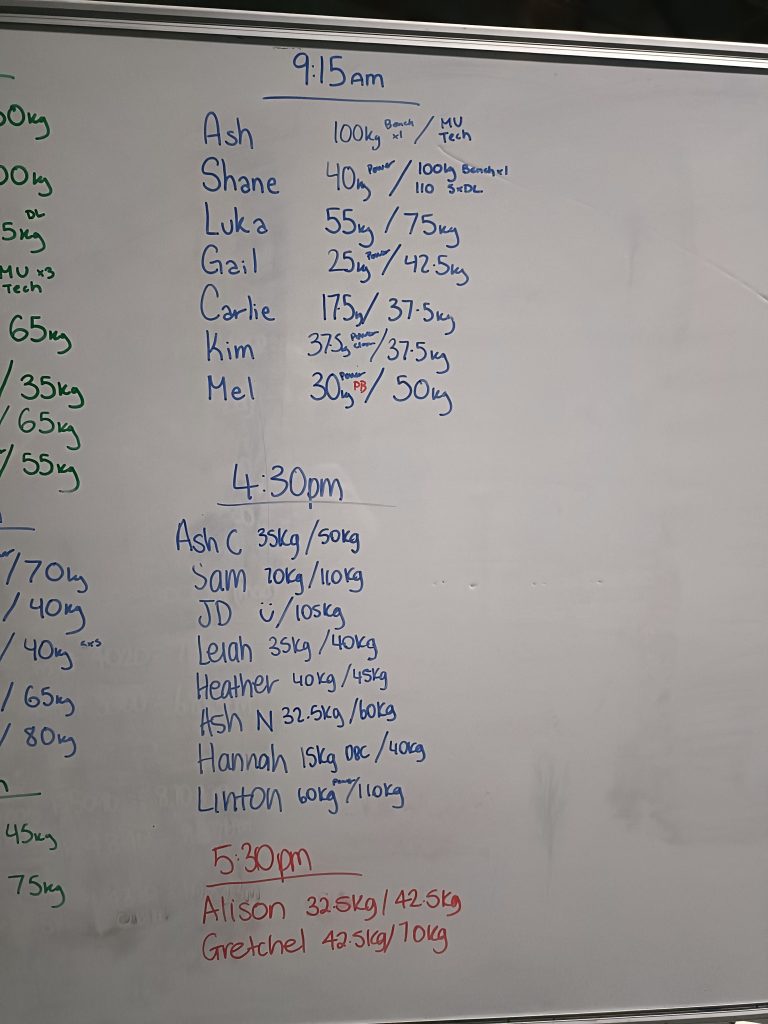 0kg
00kg
5kg DL
MU x3
Tech
65kg
/35kg
/65kg
/55kg
/70kg
/40kg
/40kg
/65kg
/80kg
45kg
75kg
9:15am
Ash 100kg Bench x1 / MU Tech
Shane 40kg Power / 100kg Bench x1
110 5xDL
Luka 55kg / 75kg
Gail 25kg Power / 42.5kg
Carlie 17.5kg / 37.5kg
Kim 37.5kg Power Clean / 37.5kg
Mel 30kg Power PB / 50kg
4:30pm
Ash C 35kg / 50kg
Sam 70kg / 110kg
JD / 105kg
Leiah 35kg / 40kg
Heather 40kg / 45kg
Ash N 32.5kg / 60kg
Hannah 15kg DBC / 40kg
Linton 60kg Power / 110kg
5:30pm
Alison 32.5kg / 42.5kg
Gretchel 42.5kg / 70kg